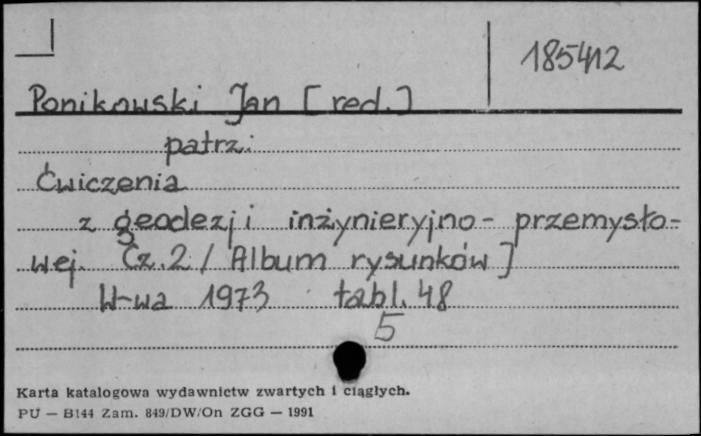 185412
Ponikowski Jan [red.]
patrz.
Ćwiczenia
z geodezji inżynieryjno- przemysło-
wej. Cz.2 / Album rysunków ]
W-wa 1973 tabl. 48
5
Karta katalogowa wydawnictw zwartych i ciągłych.
PU — B144 Zam. 849/DW/On ZGG — 1991